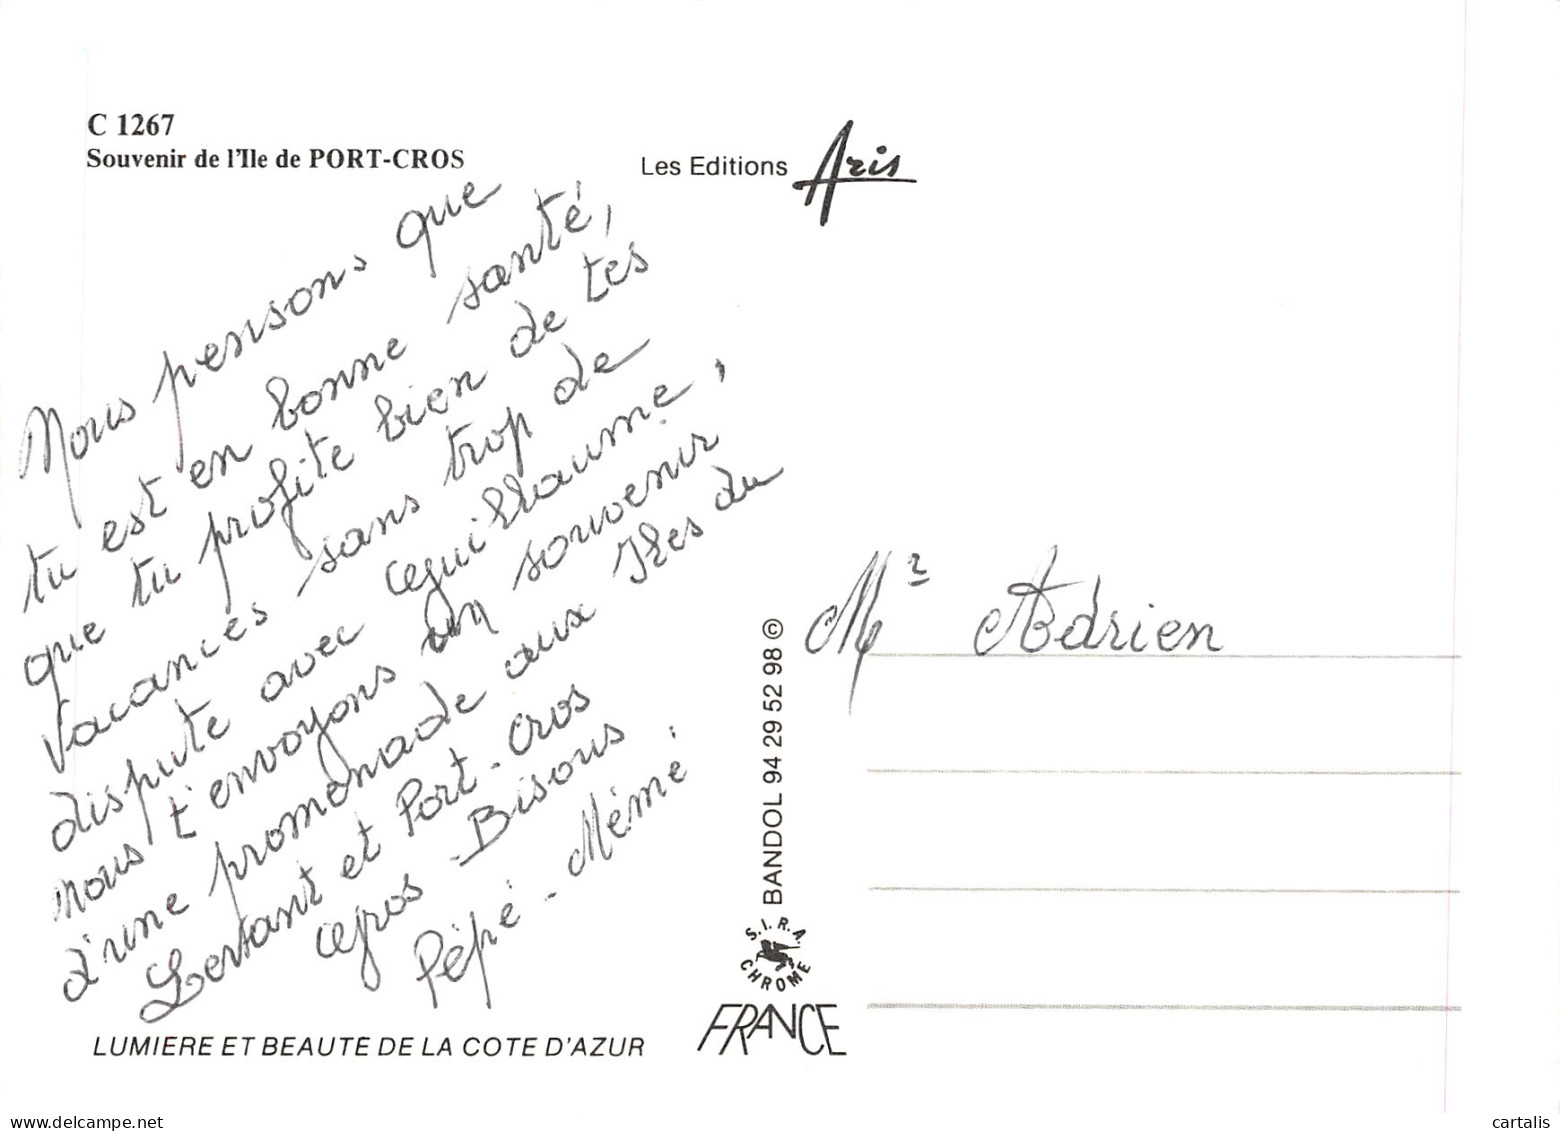 C 1267
Souvenir de l'Ile de PORT-CROS
Les Editions Aris
Nous pensons que
tu est en bonne santé,
que tu profite bien de tes
vacances sans trop de
dispute avec Guillaume,
nous t'envoyons un souvenir
d'une promenade aux Iles du
Levant et Port-Cros
Gros - Bisous
Pépé - Mémé.
Mr Adrien
BANDOL 94 29 52 98 ©
S.I.R.A.
CHROME
FRANCE
LUMIERE ET BEAUTE DE LA COTE D'AZUR
www.delcampe.net
cartalis